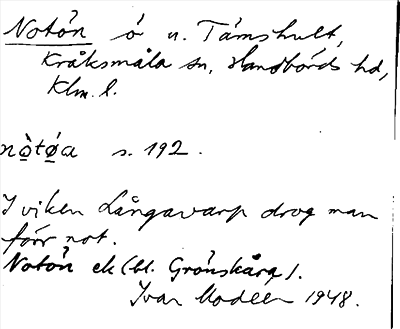 Notön ö n. Tämshult,
Kråksmåla sn, Handbörds hd,
Klm. l.
nò̱tǿ̱a s. 192.
I viken Långavarp drog man
förr not.
Notön ek (bl. Grönskåra).
Ivar Modéer 1948.